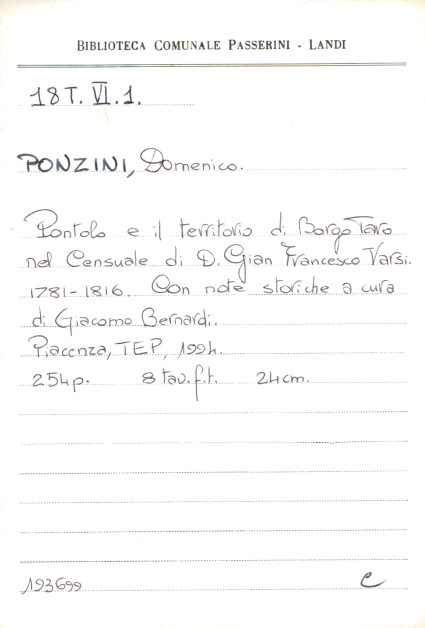 BIBLIOTECA COMUNALE PASSERINI - LANDI
18T. VI.1.
PONZINI, Domenico.
Pontolo e il territorio di Borgo Taro
nel Censuale di D. Gian Francesco Varsi.
1781-1816. Con note storiche a cura
di Giacomo Bernardi.
Piacenza, TEP, 1994.
254p. 8 tav.f.t. 24cm.
193699 C